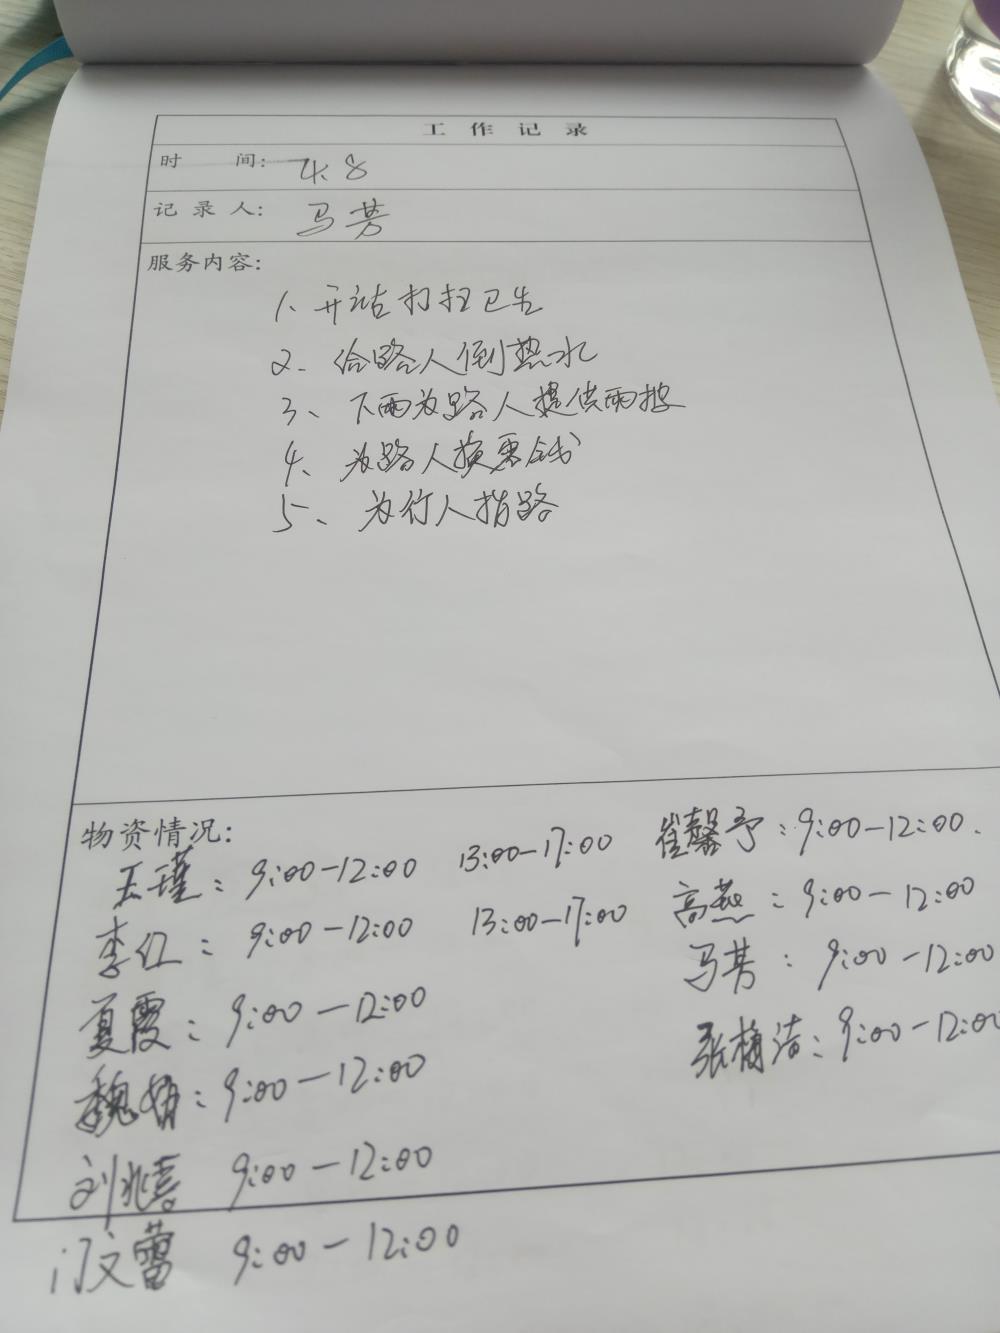 工作记录
时 间: 4.8
记录人: 马芳
服务内容:
1、开站打扫卫生
2、给路人倒热水
3、下雨为路人提供雨披
4、为路人换零钱
5、为行人指路
物资情况:
王瑾: 9:00-12:00 13:00-17:00
李红: 9:00-12:00 13:00-17:00
夏霞: 9:00-12:00
魏娟: 9:00-12:00
刘兆熹 9:00-12:00
门文蕾 9:00-12:00
崔馨予: 9:00-12:00.
高燕: 9:00-12:00
马芳: 9:00-12:00
张楠洁: 9:00-12:00